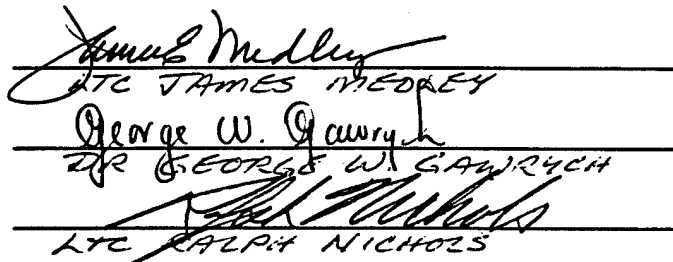 James E Medley
LTC JAMES MEDLEY
George W. Gawrych
DR GEORGE W. GAWRYCH
Ralph Nichols
LTC RALPH NICHOLS